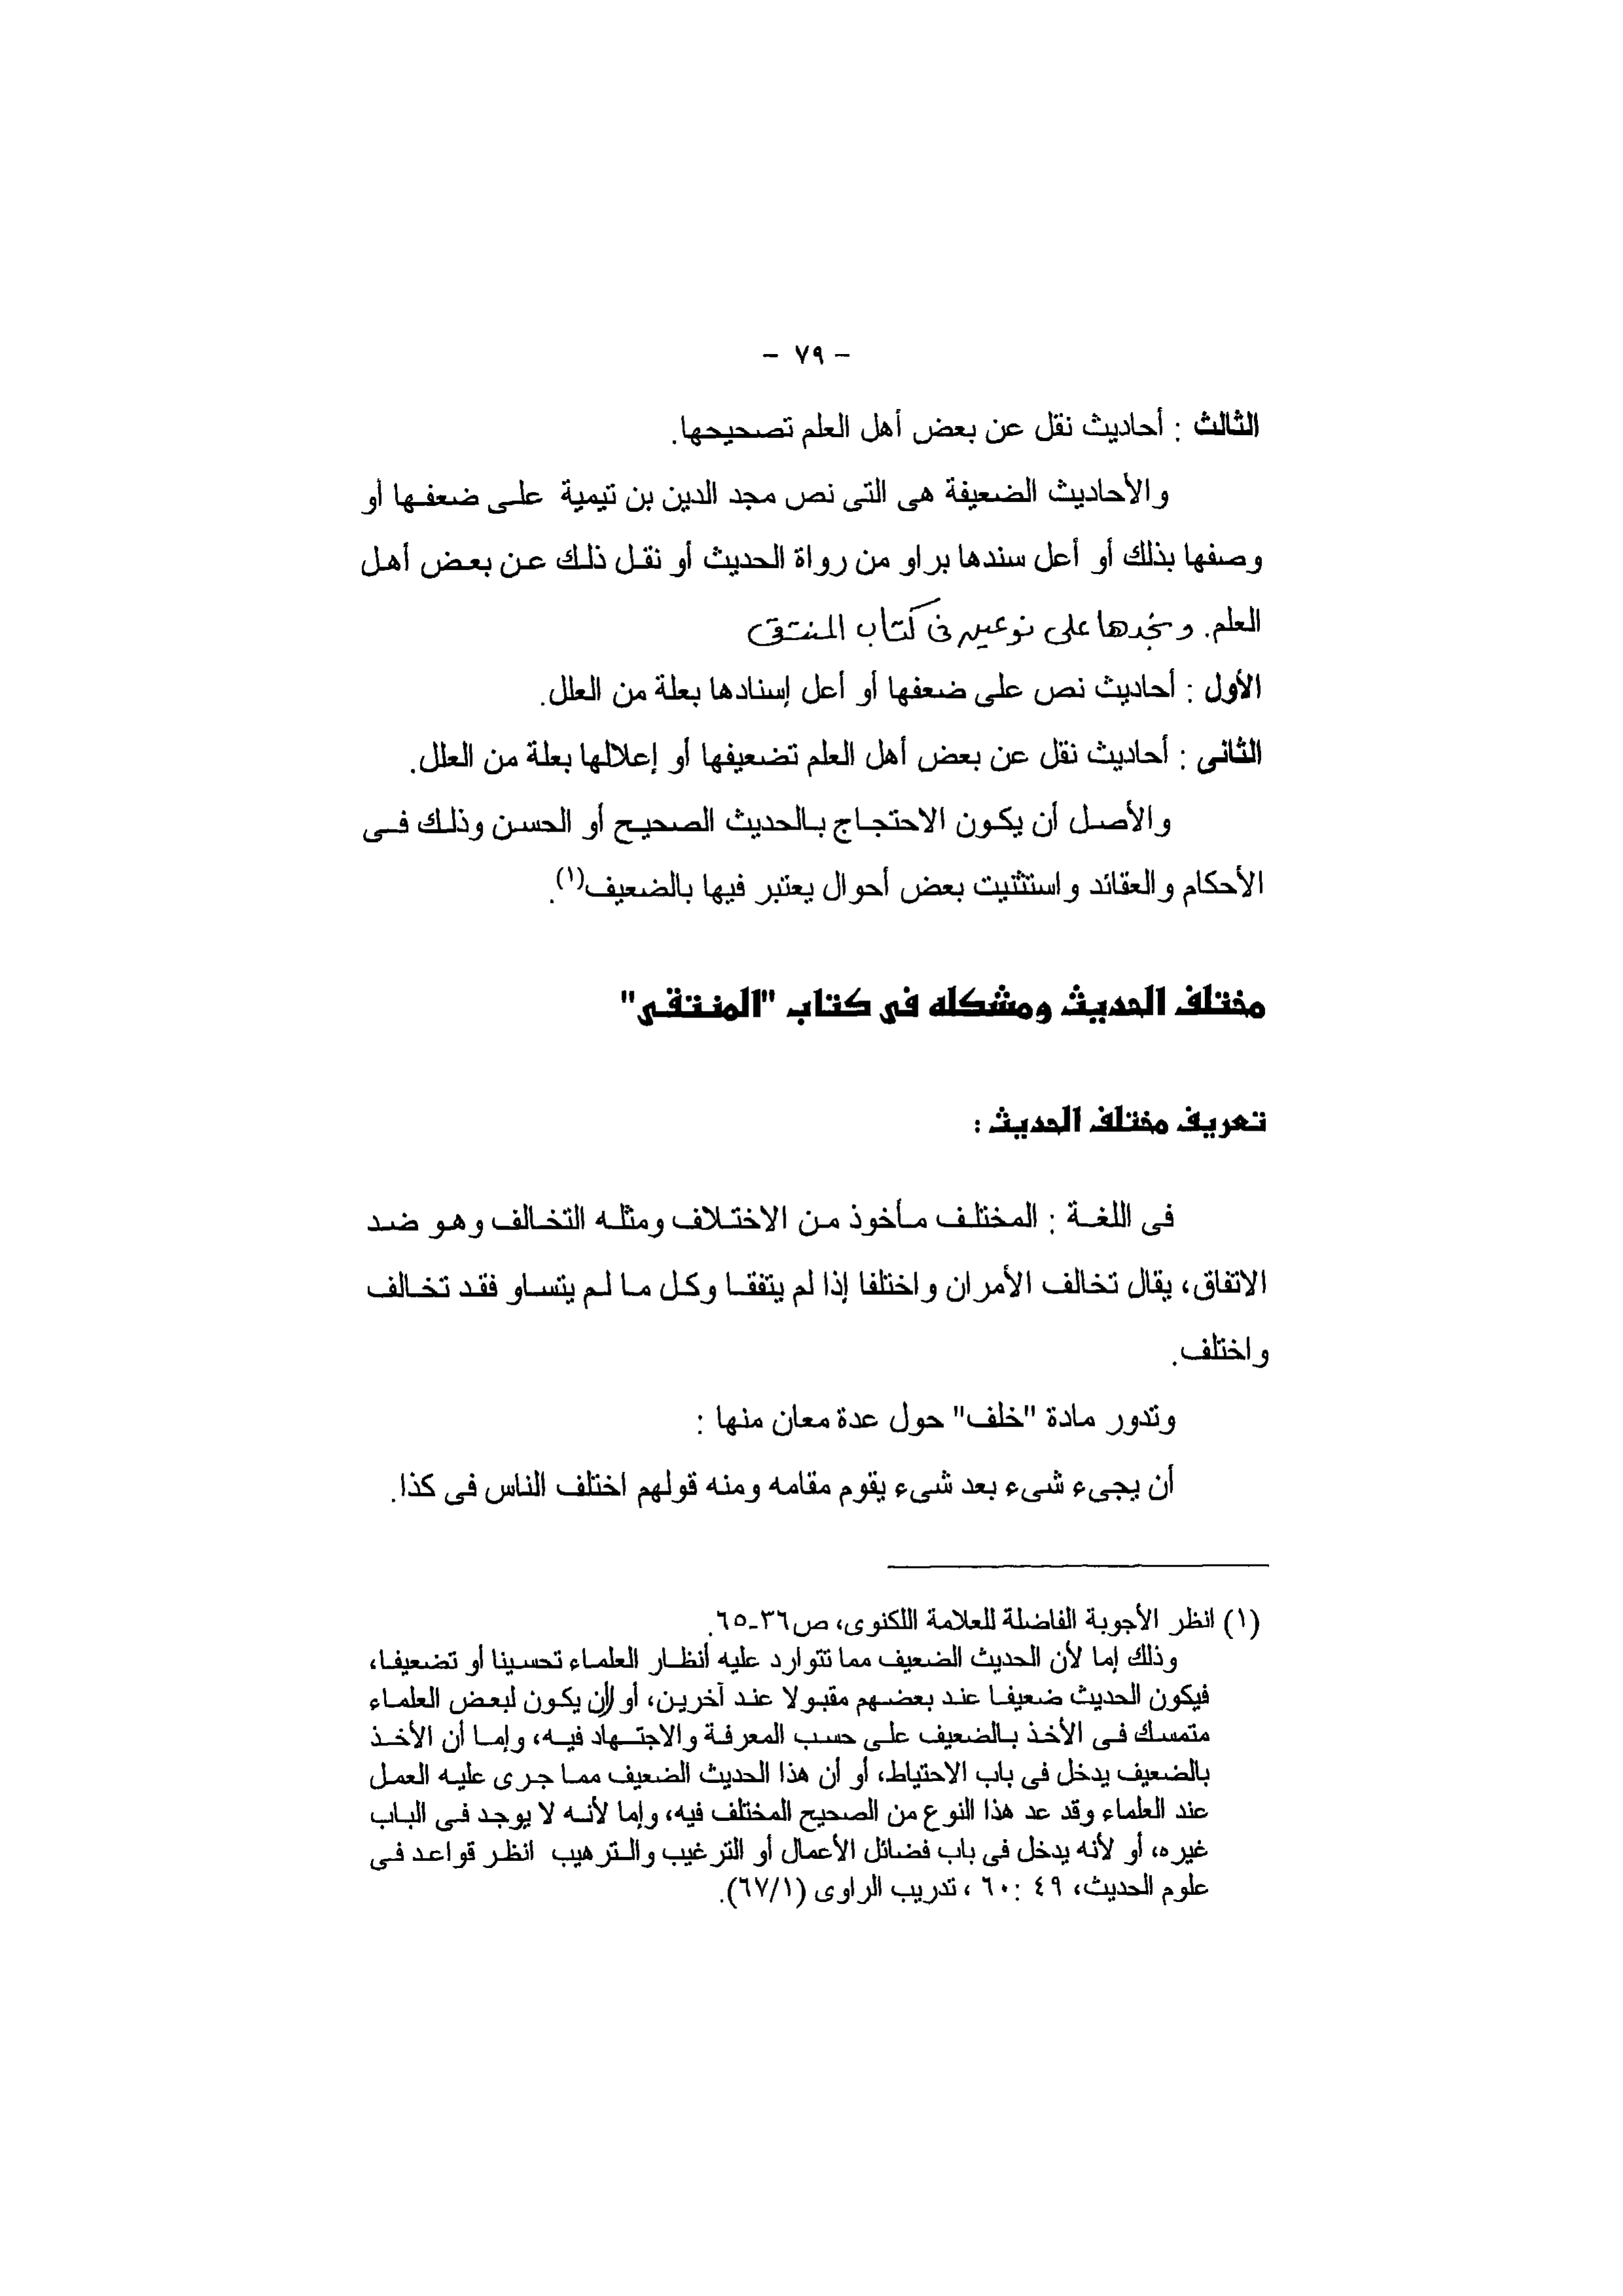 - ٧٩ -
الثالث : أحاديث نقل عن بعض أهل العلم تصحيحها.
والأحاديث الضعيفة هى التى نص مجد الدين بن تيمية على ضعفها أو
وصفها بذلك أو أعل سندها براو من رواة الحديث أو نقل ذلك عن بعض أهل
العلم. ونجدها على نوعين فى كتاب المنتقى
الأول : أحاديث نص على ضعفها أو أعل إسنادها بعلة من العلل.
الثانى : أحاديث نقل عن بعض أهل العلم تضعيفها أو إعلالها بعلة من العلل.
والأصل أن يكون الاحتجاج بالحديث الصحيح أو الحسن وذلك فى
الأحكام والعقائد واستثنيت بعض أحوال يعتبر فيها بالضعيف(١).
مختلف الحديث ومشكله فى كتاب "المنتقى"
تعريف مختلف الحديث :
فى اللغة : المختلف مأخوذ من الاختلاف ومثله التخالف وهو ضد
الاتفاق، يقال تخالف الأمران واختلفا إذا لم يتفقا وكل ما لم يتساو فقد تخالف
واختلف.
وتدور مادة "خلف" حول عدة معان منها :
أن يجىء شىء بعد شىء يقوم مقامه ومنه قولهم اختلف الناس فى كذا.
(١) انظر الأجوبة الفاضلة للعلامة اللكنوى، ص٣٦-٦٥.
وذلك إما لأن الحديث الضعيف مما تتوارد عليه أنظار العلماء تحسينا أو تضعيفا،
فيكون الحديث ضعيفا عند بعضهم مقبولا عند آخرين، أو أن يكون لبعض العلماء
متمسك فى الأخذ بالضعيف على حسب المعرفة والاجتهاد فيه، وإما أن الأخذ
بالضعيف يدخل فى باب الاحتياط، أو أن هذا الحديث الضعيف مما جرى عليه العمل
عند العلماء وقد عد هذا النوع من الصحيح المختلف فيه، وإما لأنه لا يوجد فى الباب
غيره، أو لأنه يدخل فى باب فضائل الأعمال أو الترغيب والترهيب انظر قواعد فى
علوم الحديث، ٤٩ :٦٠ ، تدريب الراوى (٦٧/١).